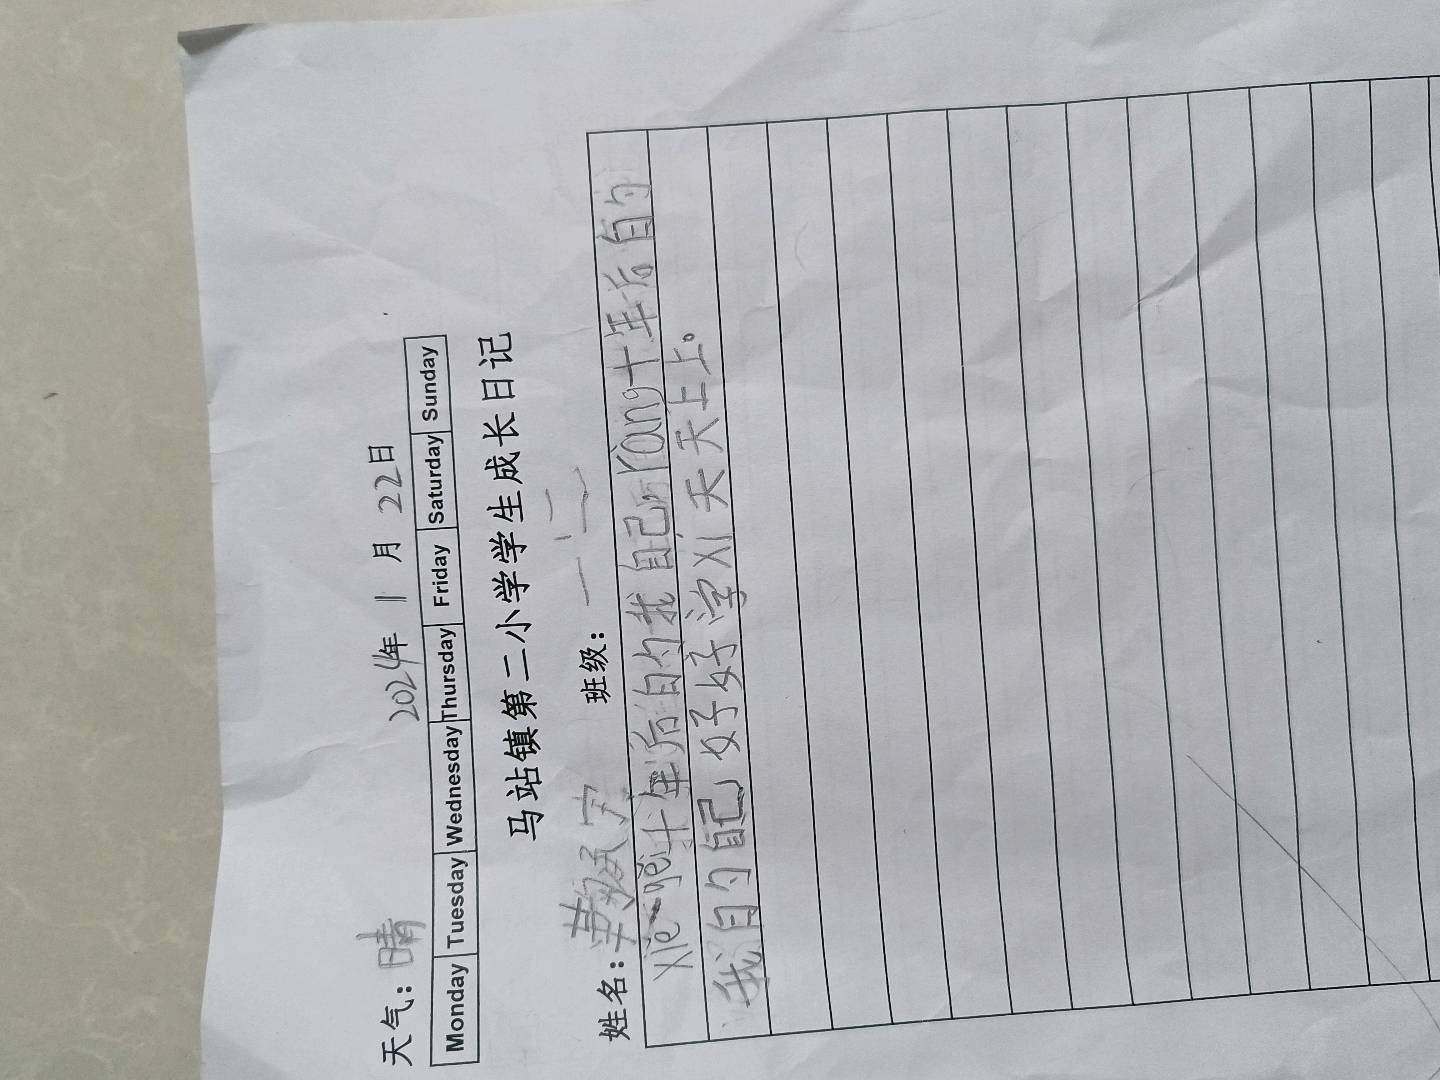 天气：晴 2024年 11 月 22日
Monday Tuesday Wednesday Thursday Friday Saturday Sunday
马站镇第二小学学生成长日记
姓名：黄 宇 班级：一 二
xiě gěi十年后的我自己，ràng十年后的
我的自己好好学xí天天上上。